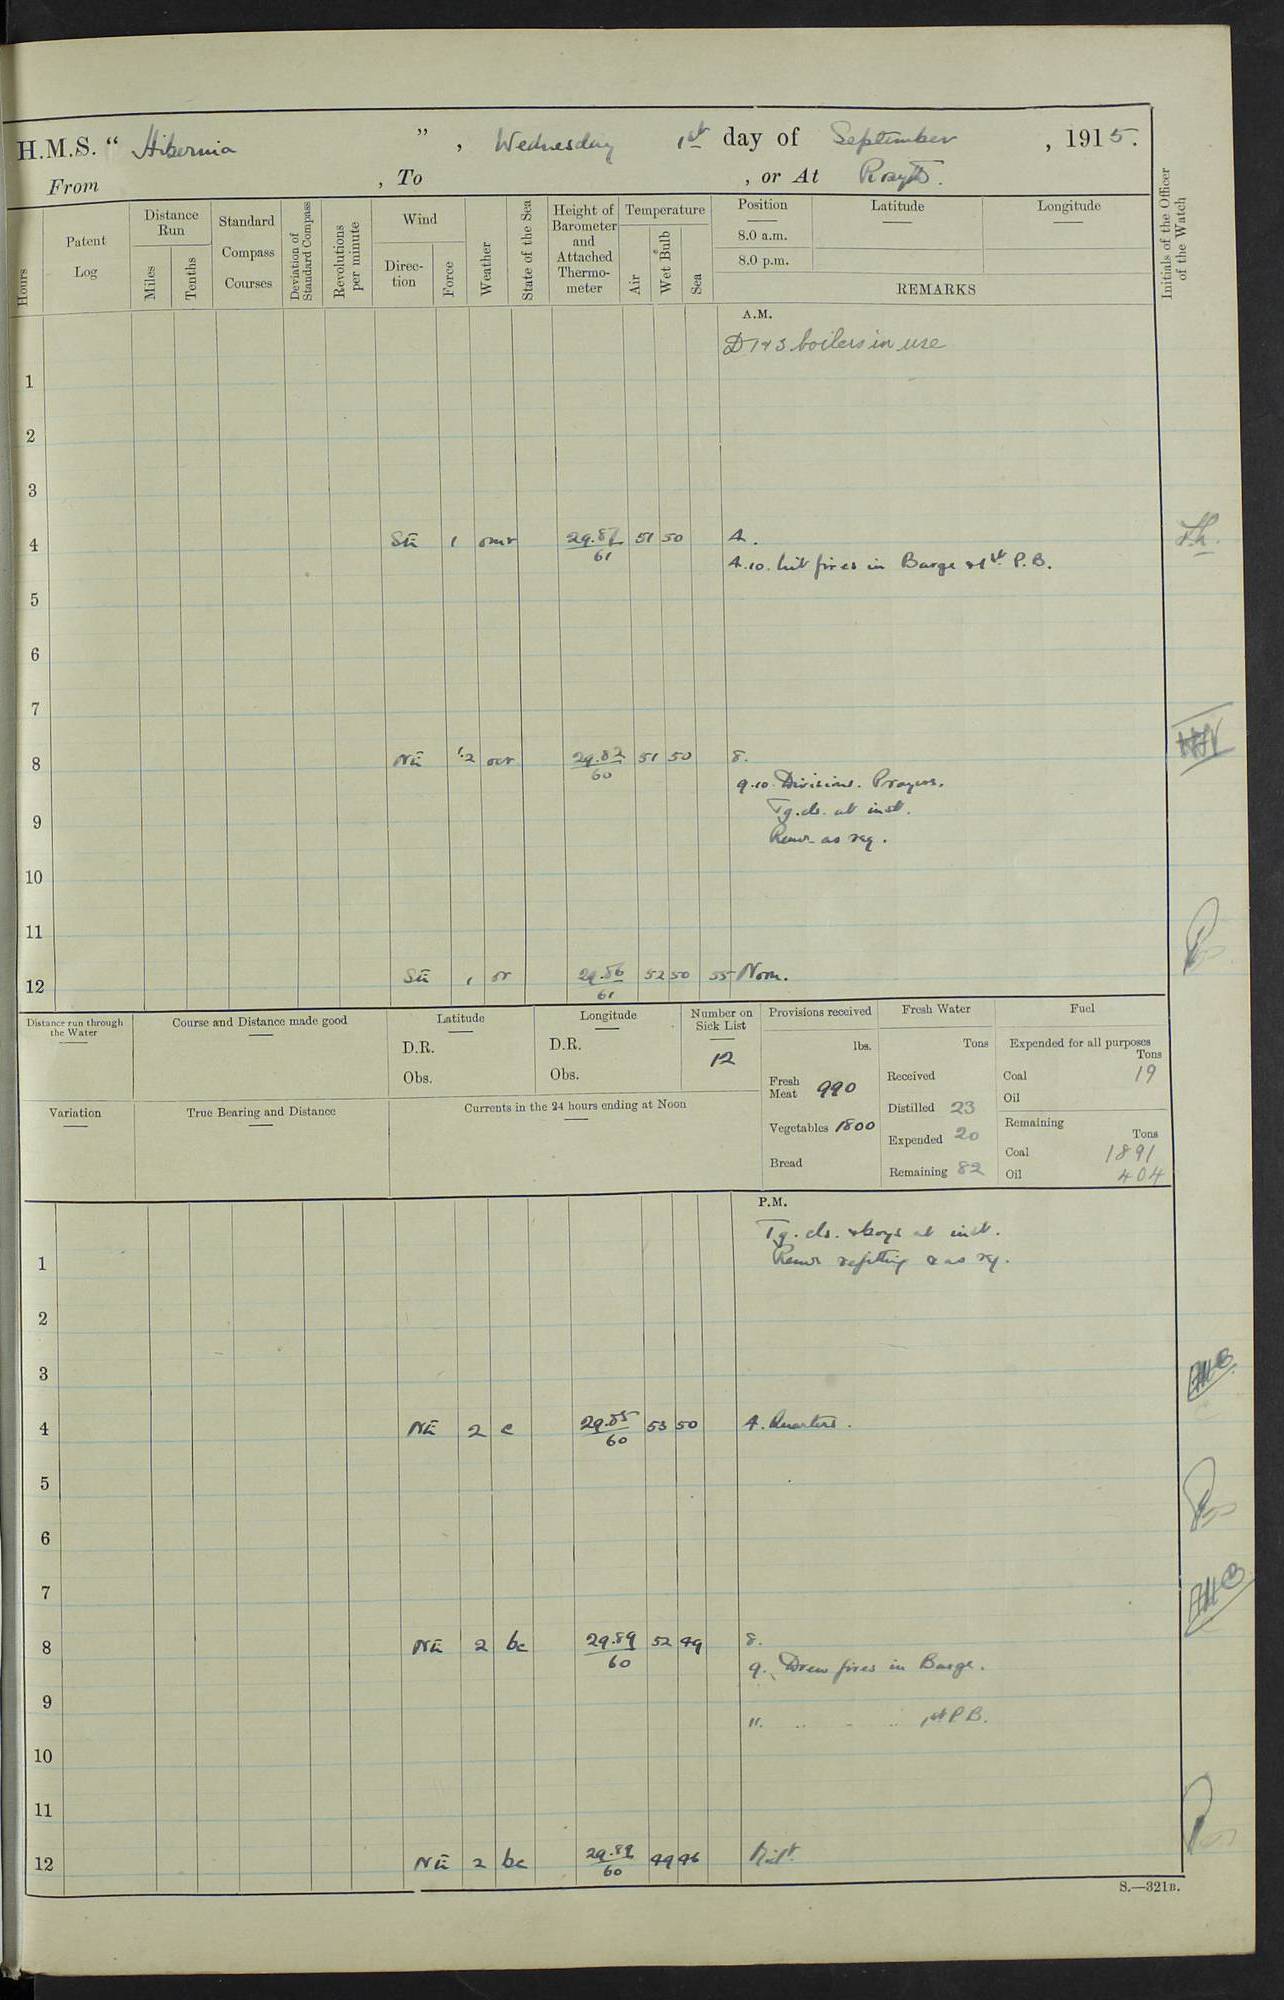 H.M.S. " Hibernia " , Wednesday 1st day of September , 1915.
From , To , or At Rosyth.
Hours
Patent Log
Distance Run
Miles
Tenths
Standard Compass Courses
Deviation of Standard Compass
Revolutions per minute
Wind
Direc-tion
Force
Weather
State of the Sea
Height of Barometer and Attached Thermo-meter
Temperature
Air
Wet Bulb
Sea
Position
8.0 a.m.
8.0 p.m.
Latitude
Longitude
REMARKS
Initials of the Officer of the Watch
A.M.
D 1 & 3 boilers in use
1
2
3
4 SE 1 omr 29.82/61 51 50 4.
4.10. Lit fires in Barge & 1st P.B.
5
6
7
8 NE 1.2 our 29.82/60 51 50 8.
9.10 Divisions. Prayers.
9 Tg. cls. at inst.
Remr as req.
10
11
12 SE 1 or 29.86/61 52 50 55 Noon.
Distance run through the Water
Course and Distance made good
Latitude
D.R.
Obs.
Longitude
D.R.
Obs.
Number on Sick List
12
Provisions received
lbs.
Fresh Meat 990
Vegetables 1800
Bread
Fresh Water
Tons
Received
Distilled 23
Expended 20
Remaining 82
Fuel
Expended for all purposes
Tons
Coal 19
Oil
Remaining
Tons
Coal 1891
Oil 404
Variation
True Bearing and Distance
Currents in the 24 hours ending at Noon
P.M.
Tg. cls. & boys at inst.
1 Remr refitting & as req.
2
3
4 NE 2 c 29.85/60 53 50 4. Quarters.
5
6
7
8 NE 2 bc 29.89/60 52 49 8.
9. Drew fires in Barge.
9
11. .. .. .. 1st P.B.
10
11
12 NE 2 bc 29.89/60 49 46 Midt.
S.—321B.